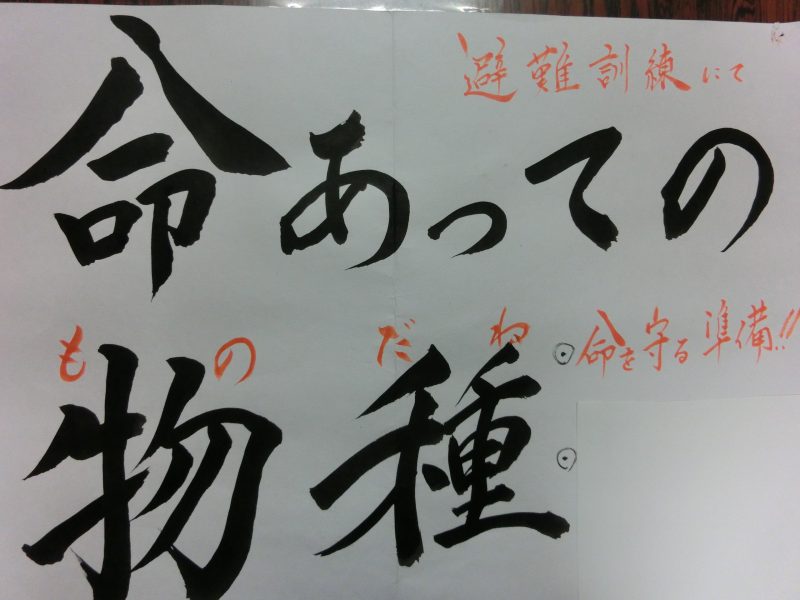 避難訓練にて
命あっての
ものだね
物種
◉命を守る準備!!
◉